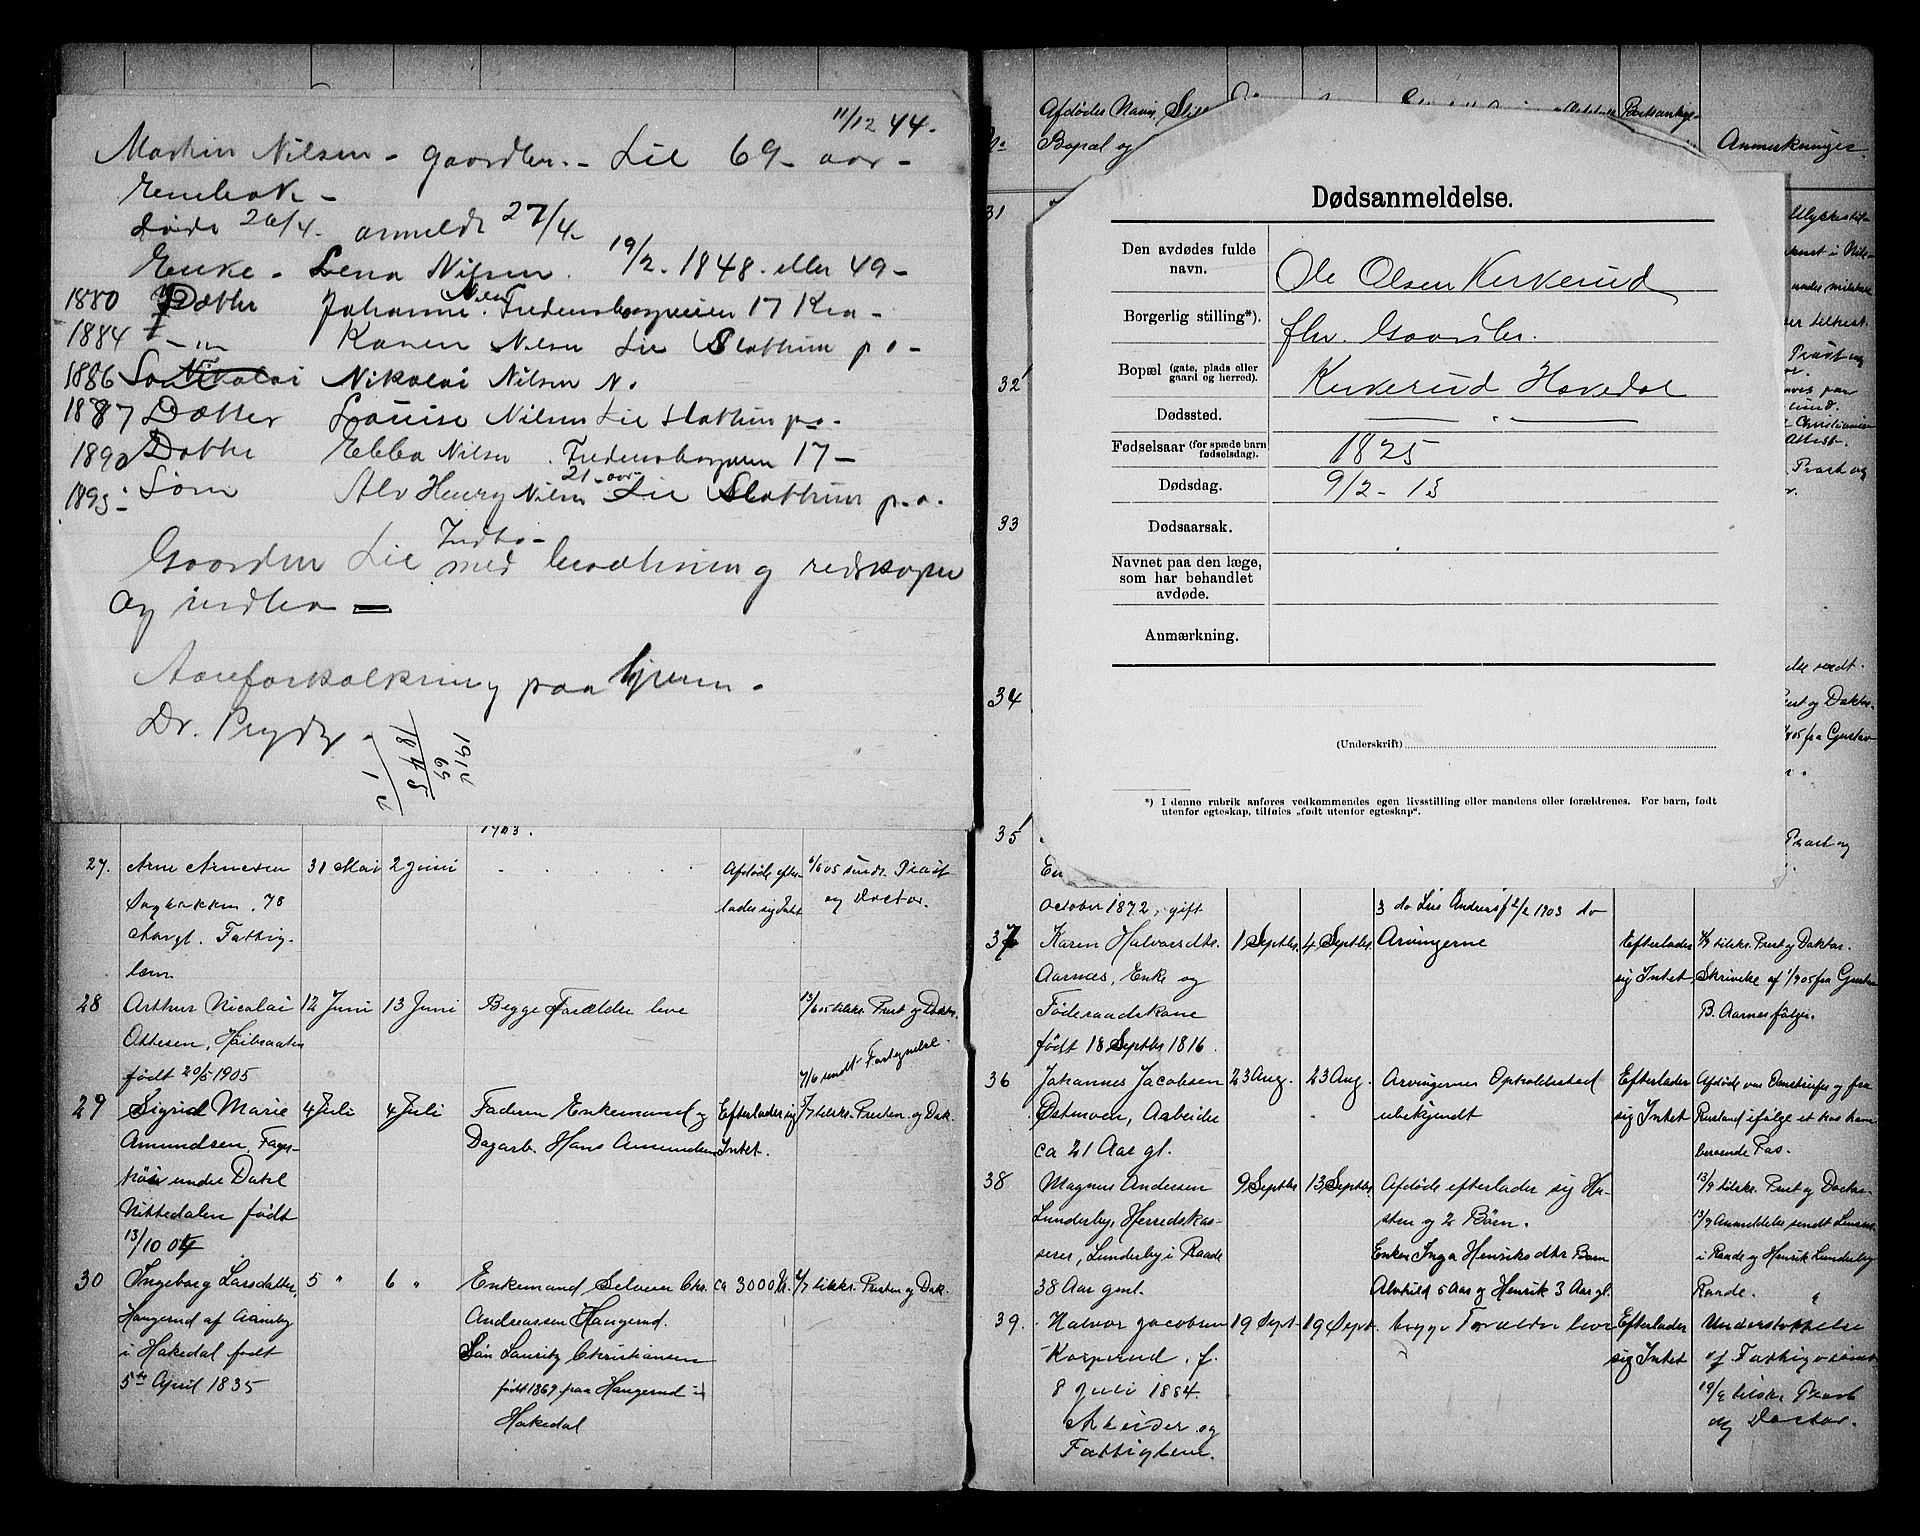 11/12 44.
Martin Nilsen - Gaardbr. - Lie 69 - aar -
Enebak -
døde 26/4. anmeldt 27/4
Enke - Lena Nilsen. 19/2 - 1848 - eller 49 -
1880 Datter Johanne Nilsen Fredensborgveien 17 Kra -
1884 - " - Karen Nilsen Lie Slattum p o -
1886 Søn Nikolai Nikolai Nilsen N.
1887 Datter Louise Nilsen Lie Slattum po -
1890 Datter Ebba Nilsen. Fredensborgveien 17 -
1893 - Søn Alv Henry Nilsen 21 - aar Lie Slattum p.o.
Gaarden Lie Indbo - med besætning redskaper
og indbo -
Aareforkalkning paa hjernen.
Dr.
1912
69
1845
1903.
27. Arne Arnesen 31 Mai 2 Juni Afdøde efter- 6/6 05 sendt Præst
Bagbakken. 78 lader sig Intet og Doctor.
Aargl. Fattig-
lem
28 Arthur Nicolai 12 Juni 13 Juni Begge Forældre leve 13/6 05 tilskr. Prest og Doktor.
Ottesen, Haibraaten
født 20/5 1905 7/6 sendt
29 Sigrid Marie 4 Juli 4 Juli Faderen Enkemand og Efterlader sig 5/7 tilskr. Presten og Dok.
Amundsen, Fager- Dagarb. Hans Amundsen Intet.
under Dahl
Nittedalen født
13/10 04
30 Ingeborg Larsdatter, 5 " 6 " Enkemand Selveier Chr. ca 3000 Kr. 6/7 tilskr. Presten og Dok.
Haugerud af Aaneby Andreassen Haugerud.
i Hakedal født Søn Lauritz Christiansen
5te April 1835 født 1869 paa Haugerud i
Hakedal
Afdødes Navn, Still
Bopæl og
Anmerkninger
31
32
33
34
35
Dødsanmeldelse.
Den avdødes fulde navn. Ole Olsen Kirkerud
Borgerlig stilling*). fhv. Gaardbr.
Bopæl (gate, plads eller gaard og herred). Kirkerud Hakedal
Dødssted. - " -
Fødselsaar (for spæde barn fødselsdag). 1825
Dødsdag. 9/2 - 13
Dødsaarsak.
Navnet paa den læge, som har behandlet avdøde.
Anmærkning.
(Underskrift)
*) I denne rubrik anføres vedkommendes egen livsstilling eller mandens eller forældrenes. For barn, født
utenfor egteskap, tilføies „født utenfor egteskap“.
October 1872, gift 3 do Lars Andersf 2/2 1903 do
37 Karen Halvorsdtr. 1 Septbr. 4 Septbr. Arvingerne Efterlader 4/9 tilskr. Prest og Doktor.
Aarnes, Enke og sig Intet Skrivelse af 1/9 05 fra Gustav
Føderaadskone B. Aarnes følger.
født 18 Septbr 1816.
36 Johannes Jacobsen 23 Aug. 23 Aug. Arvingernes Opholdssted Efterlader Afdøde var Omstreifer og fra
Østmoen, Arbeider ubekjendt sig Intet Rusland ifølge et hos ham
ca 21 Aar gl. beroende Pas.
38 Magnus Andersen 9 Septbr 13 Septbr Afdøde efterlader sig Hu- 13/9 tilskr. Prest og Doctor
Lunderby, Herredskas- stru og 2 Børn. 13/9 Anmeldelse sendt Lensm.
serer, Lunderby i Raade Enken Inga Henriksdtr Børn i Raade og Henrik Lunderby
38 Aar gml. Alvhild 5 Aar og Henrik 3 Aar gl. Raade.
39. Halvor Jacobsen 19 Sept. 19 Sept. begge Forældre lever Efterlader Understøttelse
Kasperud. f. sig Intet af Fattigvæsenet
8 Juli 1884. 19/9 tilskr. Præst
Arbeider og og Doctor.
Fattiglem.